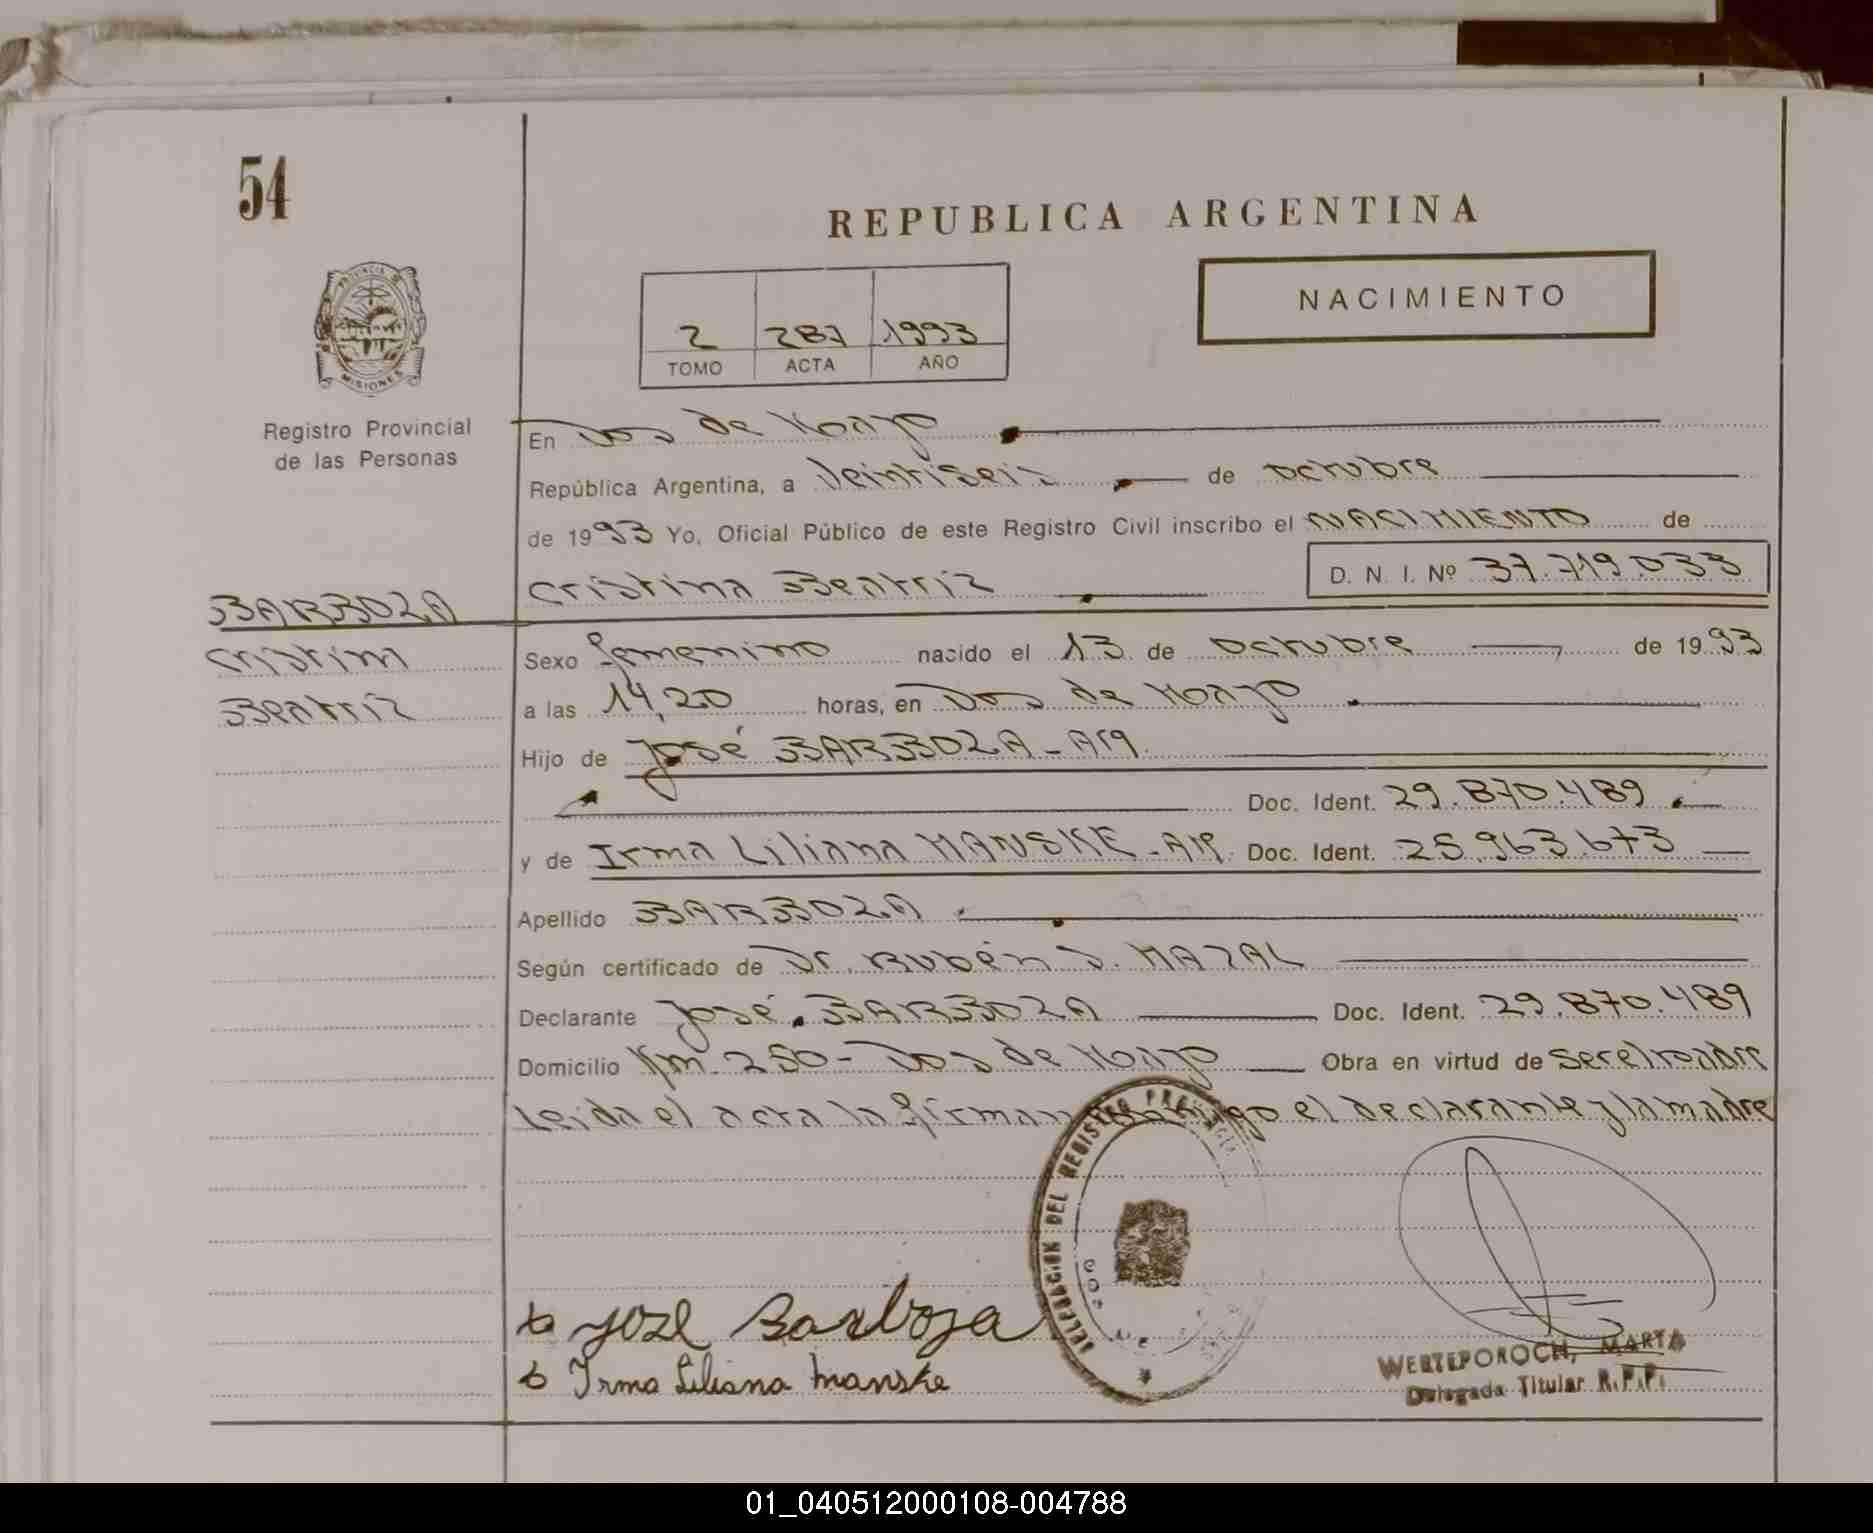 54
REPUBLICA ARGENTINA
NACIMIENTO
2 287 1993
TOMO ACTA AÑO
PROVINCIA DE
MISIONES
Registro Provincial
de las Personas
En Dos de Mayo
República Argentina, a Veintiseis de octubre
de 1993 Yo, Oficial Público de este Registro Civil inscribo el NACIMIENTO de
Cristina Beatriz D. N. I. Nº 37.719.033
BARBOZA
Cristina
Beatriz
Sexo femenino nacido el 13 de octubre de 1993
a las 14,20 horas, en Dos de Mayo
Hijo de José BARBOZA - Arg.
Doc. Ident. 29.870.489
y de Irma Liliana MANSKE - Arg. Doc. Ident. 25.963.673
Apellido BARBOZA
Según certificado de Dr. Rubén D. MAZAL
Declarante José BARBOZA Doc. Ident. 29.870.489
Domicilio Km. 250 - Dos de Mayo Obra en virtud de ser el padre
Leida el acta la firman conmigo el declarante y la madre
DELEGACION DEL REGISTRO PROVINCIAL
Joze Barboza
Irma Liliana Manske
WERTEPOROCH, MARTA
Delegada Titular R.P.P.
01_040512000108-004788